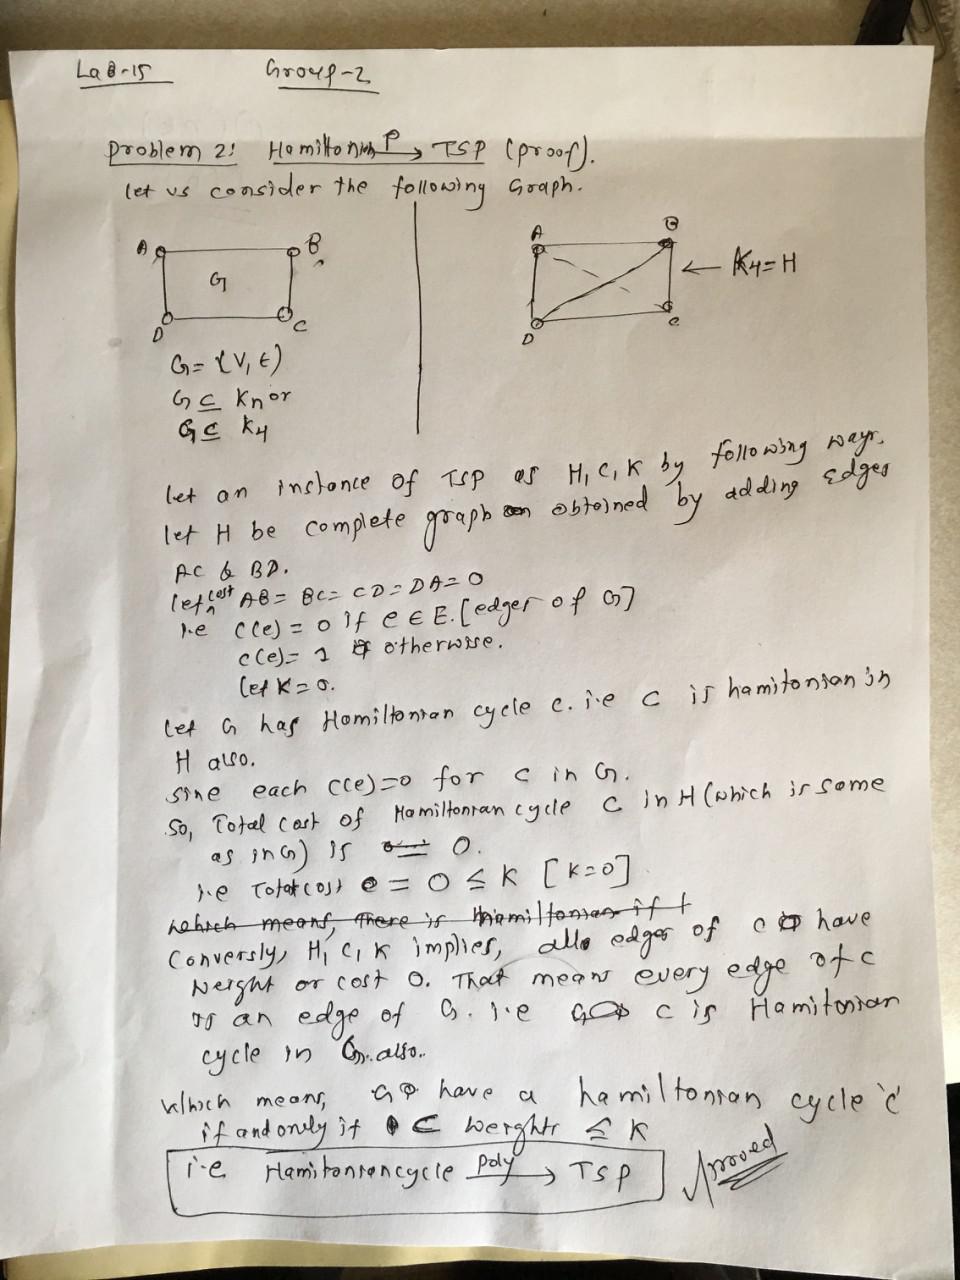 Lab-15 Group-2
Problem 2: Hamiltonian P→ TSP (proof).
let us consider the following Graph.
A B
G
D C
A B
K4=H
D C
G= (V, E)
G ⊆ Kn or
G ⊆ K4
let an instance of TSP as H, C, K by following ways.
let H be complete graph obtained by adding edges
AC & BD.
let cost AB = BC = CD = DA = 0
i.e c(e) = 0 if e ∈ E. [edges of G]
c(e) = 1 if otherwise.
let K=0.
let G has Hamiltonian cycle c. i.e c is hamitonian in
H also.
sine each c(e)=0 for c in G.
So, Total cost of Hamiltonian cycle C in H (which is same
as in G) is 0.
i.e Total cost = 0 ≤ K [K=0]
which means, there is Hamiltonian if f
Conversly, H, C, K implies, all edges of c have
Weight or cost 0. That means every edge of c
is an edge of G. i.e c is Hamitonian
cycle in G. also..
Which means, G have a hamiltonian cycle 'c'
if and only if C weights ≤ K
i.e Hamitonian cycle poly→ TSP
proved